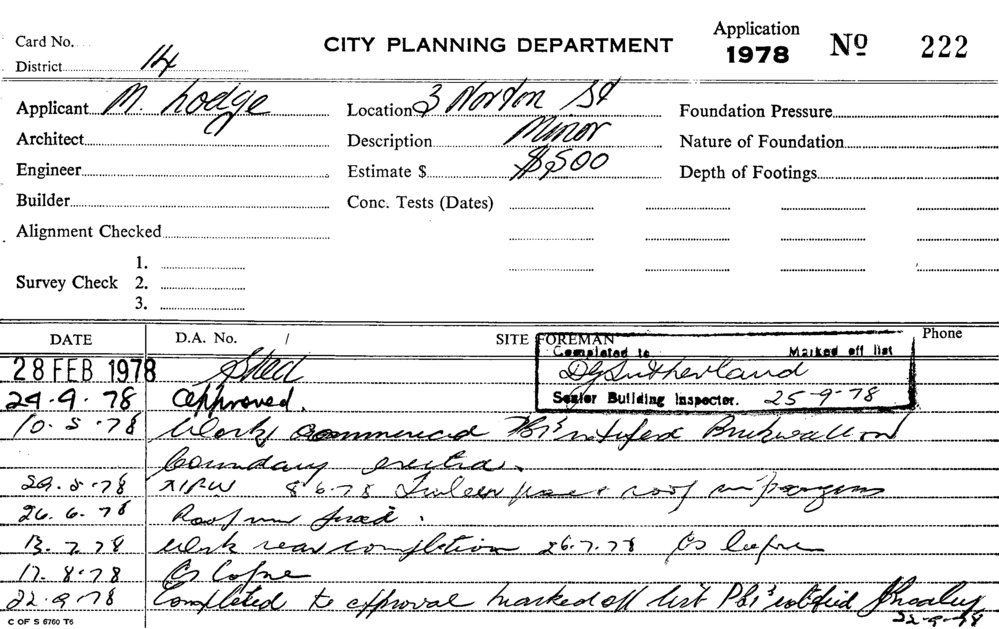 Application
Card No. CITY PLANNING DEPARTMENT 1978 No 222
District 14
Applicant M. Lodge Location 3 Norton St Foundation Pressure
Architect Description Minor Nature of Foundation
Engineer Estimate $ $500 Depth of Footings
Builder Conc. Tests (Dates)
Alignment Checked
1.
Survey Check 2.
3.
DATE D.A. No. / SITE FOREMAN Phone
Completed to Marked off list
28 FEB 1978 Shed DG Sutherland
Senior Building Inspector. 25-9-78
24.9.78 approved.
10.5.78 Work commenced notified Brickwall on
boundary erected.
29.5.78 8.6.78 roof
26.6.78 Roof
13.7.78 Work near completion 26.7.78 As before
17.8.78 As before
22.9.78 Completed to approval marked off list notified
22-9-78
C OF S 6760 T6